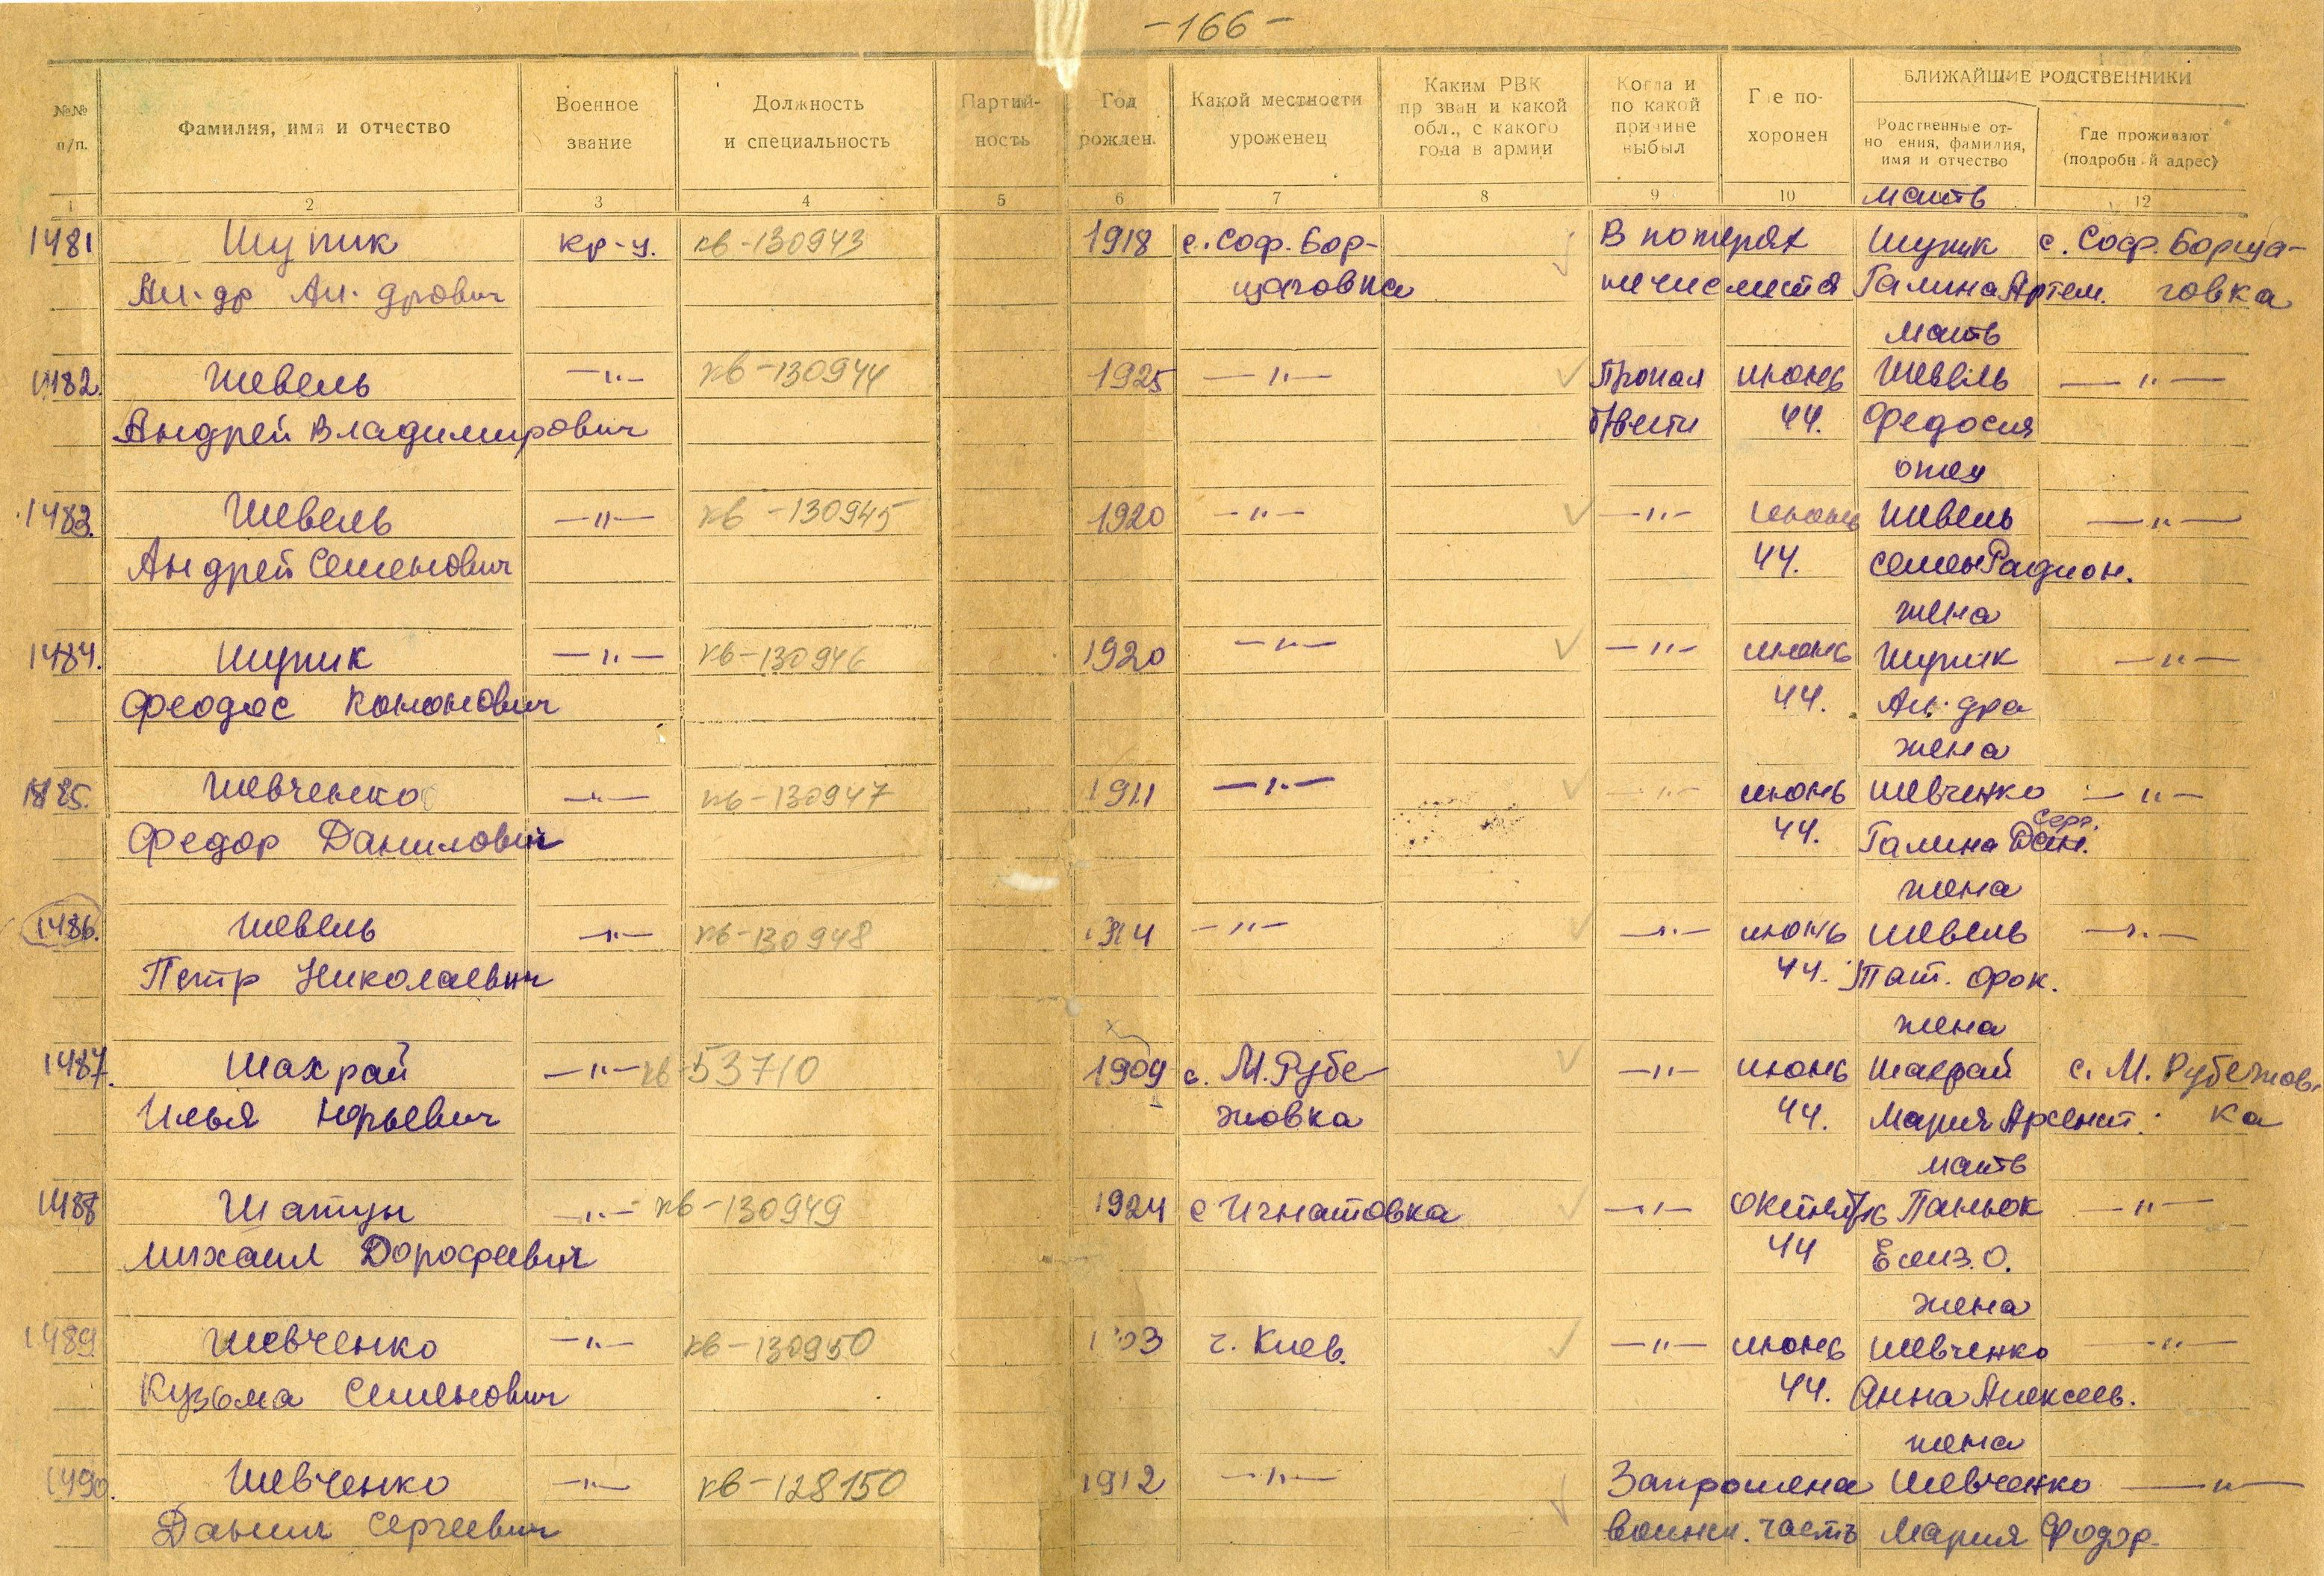 -166-
БЛИЖАЙШИЕ РОДСТВЕННИКИ
№№ п/п.
Фамилия, имя и отчество
Военное звание
Должность и специальность
Партийность
Год рожден.
Какой местности уроженец
Каким РВК пр зван и какой обл., с какого года в армии
Когда и по какой причине выбыл
Где похоронен
Родственные отно ения, фамилия, имя и отчество
Где проживают (подробн й адрес)
1 2 3 4 5 6 7 8 9 10 12
мать
1481 Шупик кр-ц. кв-130943 1918 с. Соф. Бор- В потерях Шупик с. Соф. Борща-
Ал-др Ал-дрович щаговка не числится Галина Артем. говка
мать
1482. Шевель —"— кв-130944 1925 —"— Пропал июнь Шевель —"—
Андрей Владимирович б/вести 44. Федосия
отец
1483. Шевель —"— кв-130945 1920 —"— —"— июнь Шевель —"—
Андрей Семенович 44. Семен Радион.
жена
1484. Шупик —"— кв-130946 1920 —"— —"— июнь Шупик —"—
Феодос Кононович 44. Ал-дра
жена
1485. Шевченко —"— кв-130947 1911 —"— —"— июнь Шевченко —"—
Серг.
Федор Данилович 44. Галина Дан.
жена
1486. Шевель —"— кв-130948 1914 —"— —"— июнь Шевель —"—
Петр Николаевич 44. Тат. Фок.
жена
1487. Шахрай —"— кв-53710 1909 с. М. Рубе- —"— июнь Шахрай с. М. Рубежов-
Илья Юрьевич жовка 44. Мария Арсент. ка
мать
1488 Шатун —"— кв-130949 1924 с Игнатовка —"— октябрь Паньок —"—
Михаил Дорофеевич 44 Елиз. О.
жена
1489 Шевченко —"— кв-130950 г. Киев. —"— июнь Шевченко —"—
Кузьма Семенович 44. Анна Алексеев.
жена
1490. Шевченко —"— кв-128150 1912 —"— Запрошена Шевченко —"—
Данил Сергеевич воинск. часть Мария Федор.